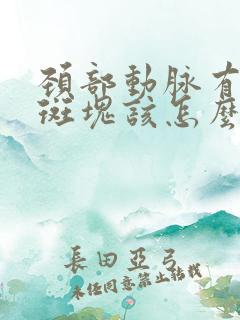 頚部動脉有
斑塊該怎麽
長田亞弓
未经同意禁止转载